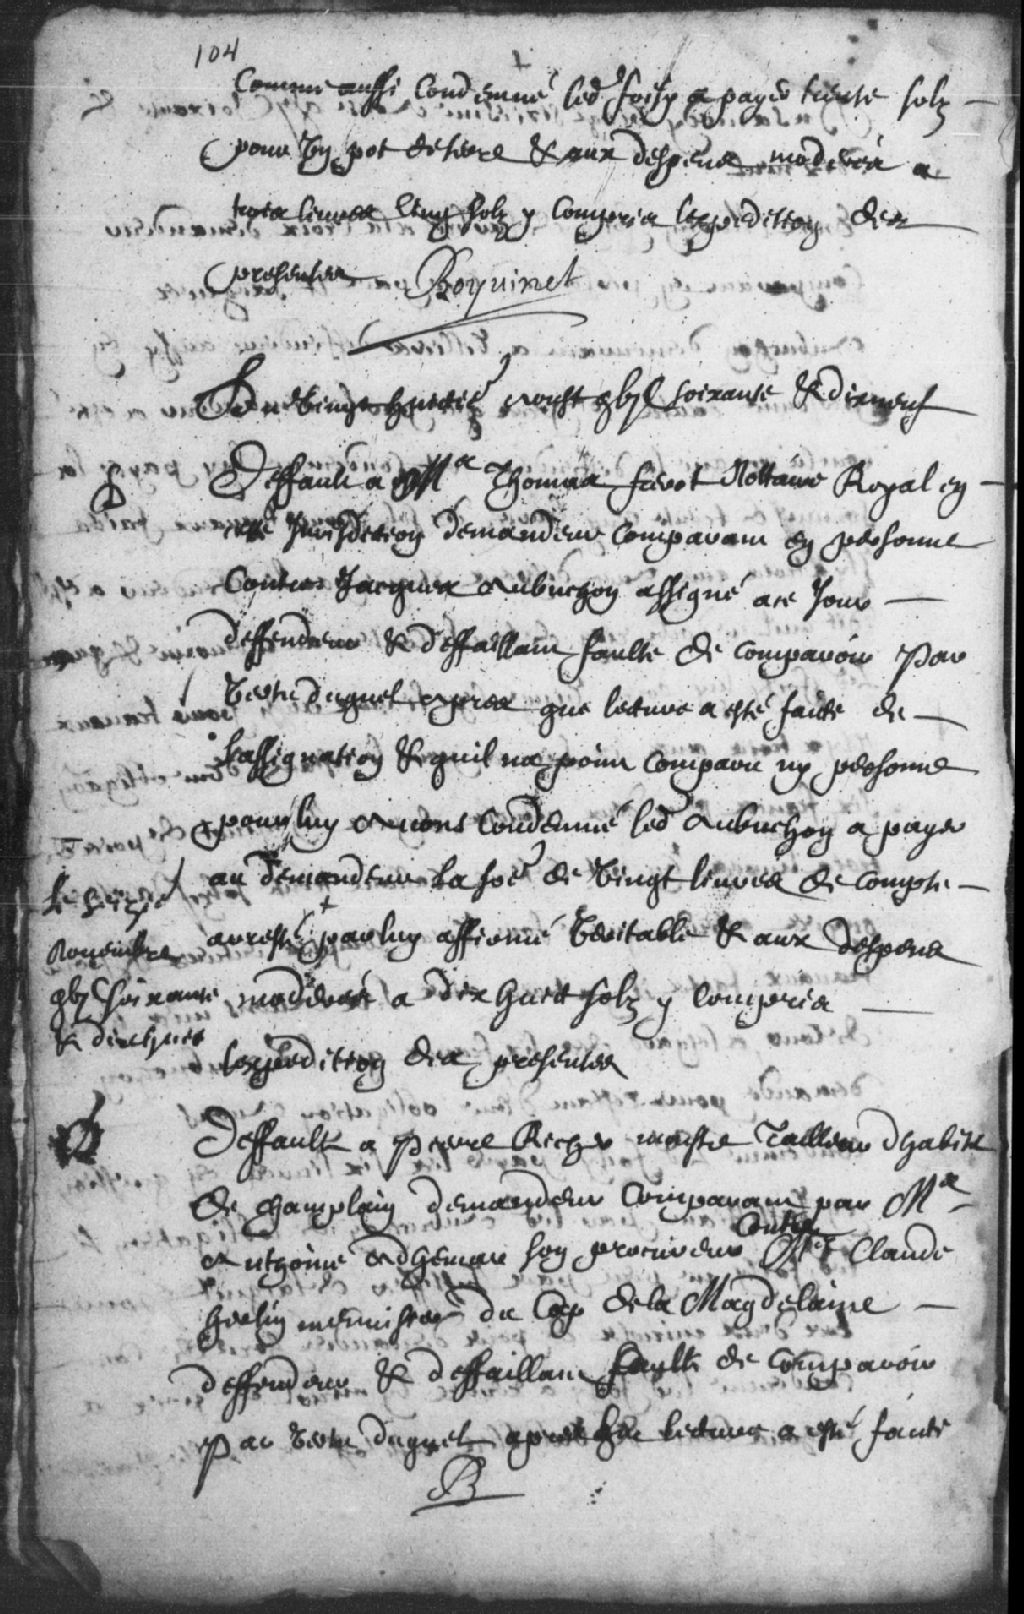 104
Comme aussi Condemné led foisy a payer trente solz
pour un pot de terre & aux despens moderés a
trois livres cinq solz y Compris lexpedition des
presentes Boyvinet
Du vingt huictie Aoust gbjC soixante & dixneuf
Deffault a Me Thomas frerot Nottaire Royal en
cette Jurisdiction demandeur Comparant en personne
Contre Jacques Aubuchon assigné a ce Jour
deffendeur & deffaillant faulte de comparoir Par
Vertu duquel apres que lecture a esté faicte de
Lassignation & quil na point comparu ny personne
pour luy Avons Condemné led Aubuchon a payer
au demandeur La soe de vingt livres de compte
arresté par luy affirmé veritable & aux despens
moderés a dix huict solz y Compris
lexpedition des presentes
Le seizie
Novembre
gbjC soixante
& dixhuict
Deffault a Pierre Richer maistre Tailleur dhabits
de champlain demandeur Comparant par Me
Anthoine Adhemar son procureur Contre Claude
herlin menuisier du Cap de la Magdelaine
deffendeur & deffaillant faulte de comparoir
Par Vertu duquel apres que lecture a esté faicte
B